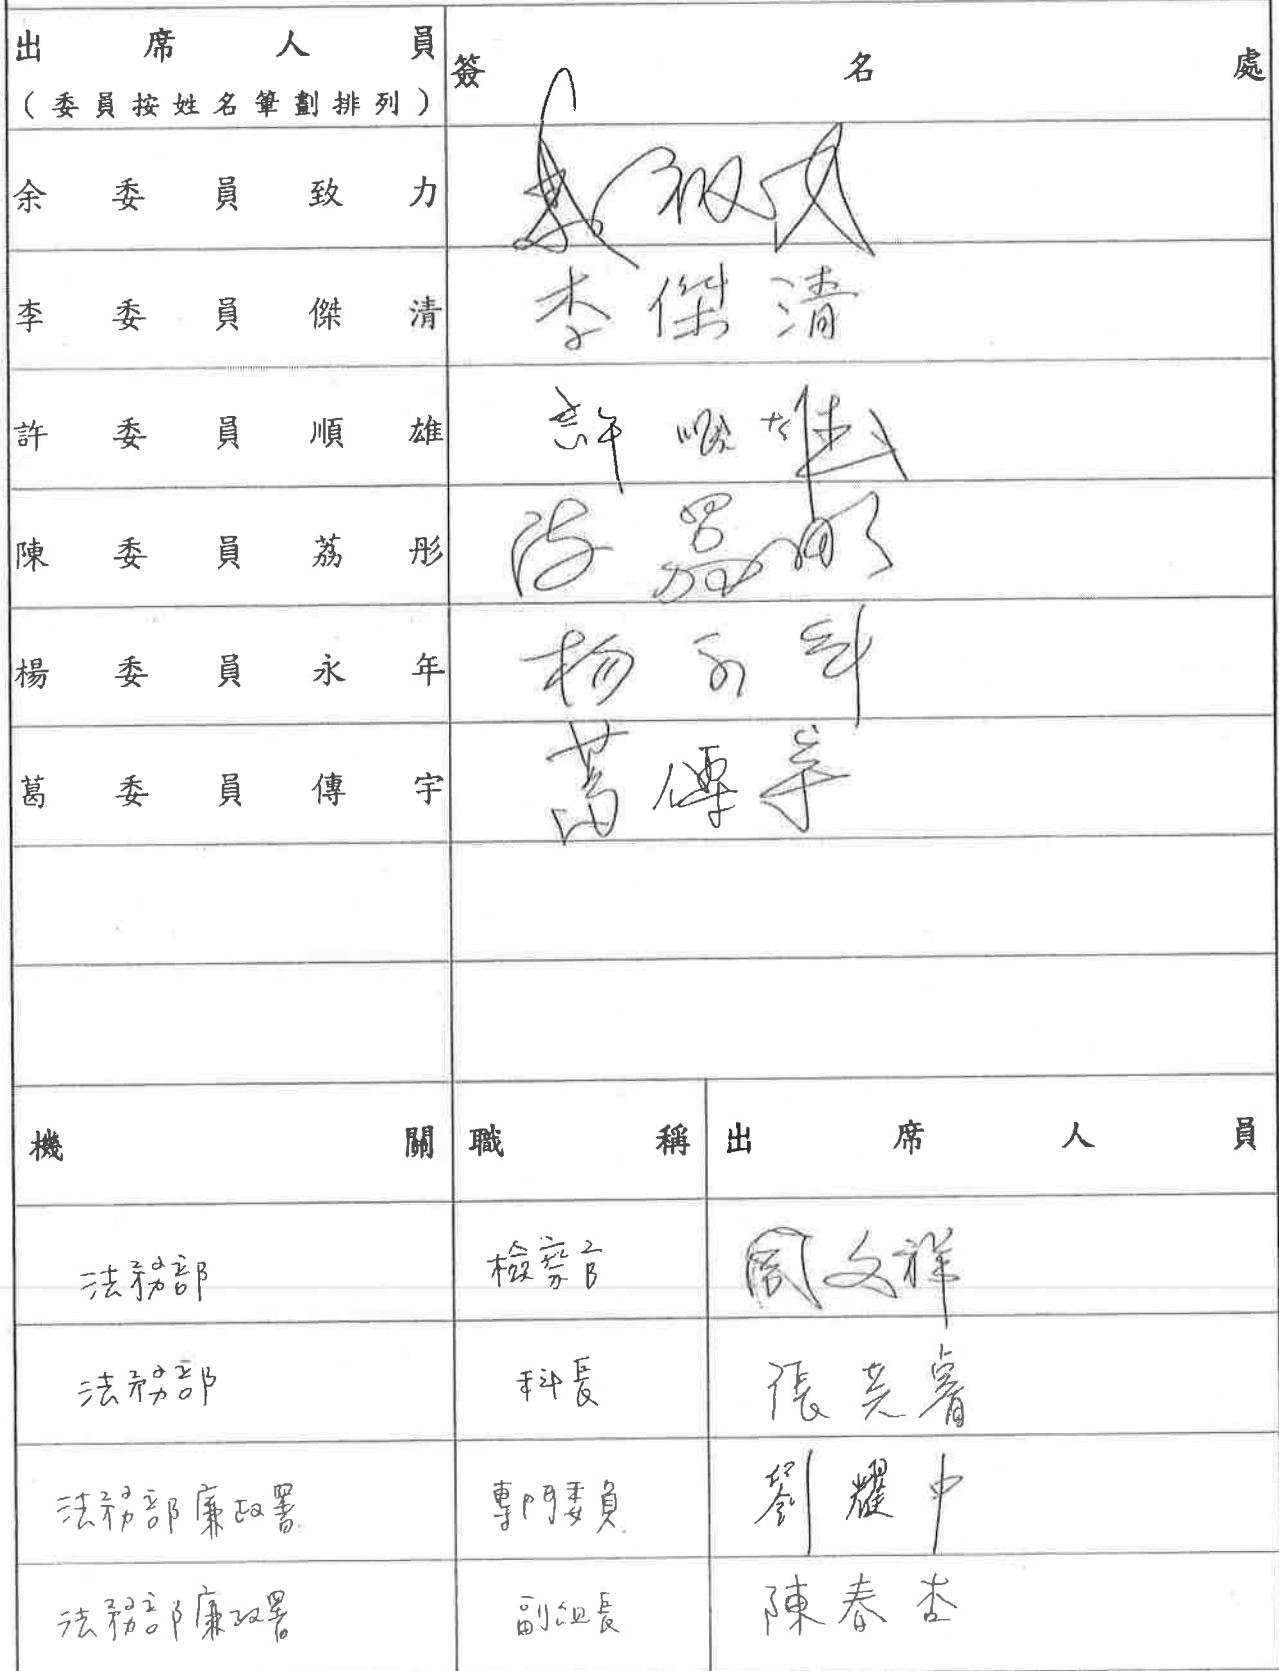 出席人員 簽名處
（委員按姓名筆劃排列）
余委員致力
李委員傑清 李傑清
許委員順雄 許順雄
陳委員荔彤 陳荔彤
楊委員永年 楊永年
葛委員傳宇 葛傳宇
機關 職稱 出席人員
法務部 檢察官 周文祥
法務部 科長 張堯睿
法務部廉政署 專門委員 劉耀中
法務部廉政署 副組長 陳春杏